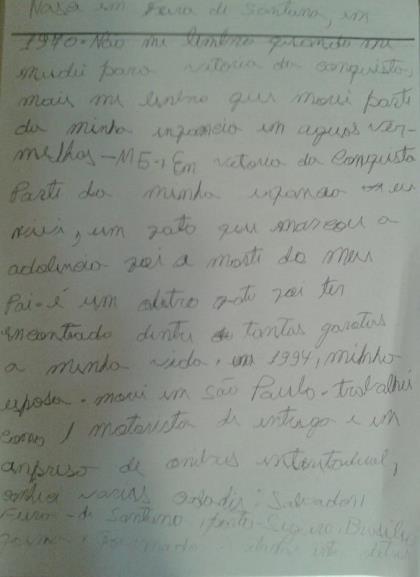 Nasa em Feira de Santana, em
1970. Não mi lembro quando me
mudei para vitoria da conquista
mais me lembro que morei parti
da minha infancia em aguas ver-
melhas - MG-, Em vitoria da Conquista
Parti da minha infancia eu
vivi, um fato que marcou a
foi a morti do meu
Pai - é um outro fato foi ter
encontrado dentre tantas garotas
a minha vida. em 1994, minha
esposa. morei em São Paulo - trabalhei
como motorista di entrega e em
anpresa de onibus
varias Salvador,
Feira - di Santana, porto-Siguro, Brasilia